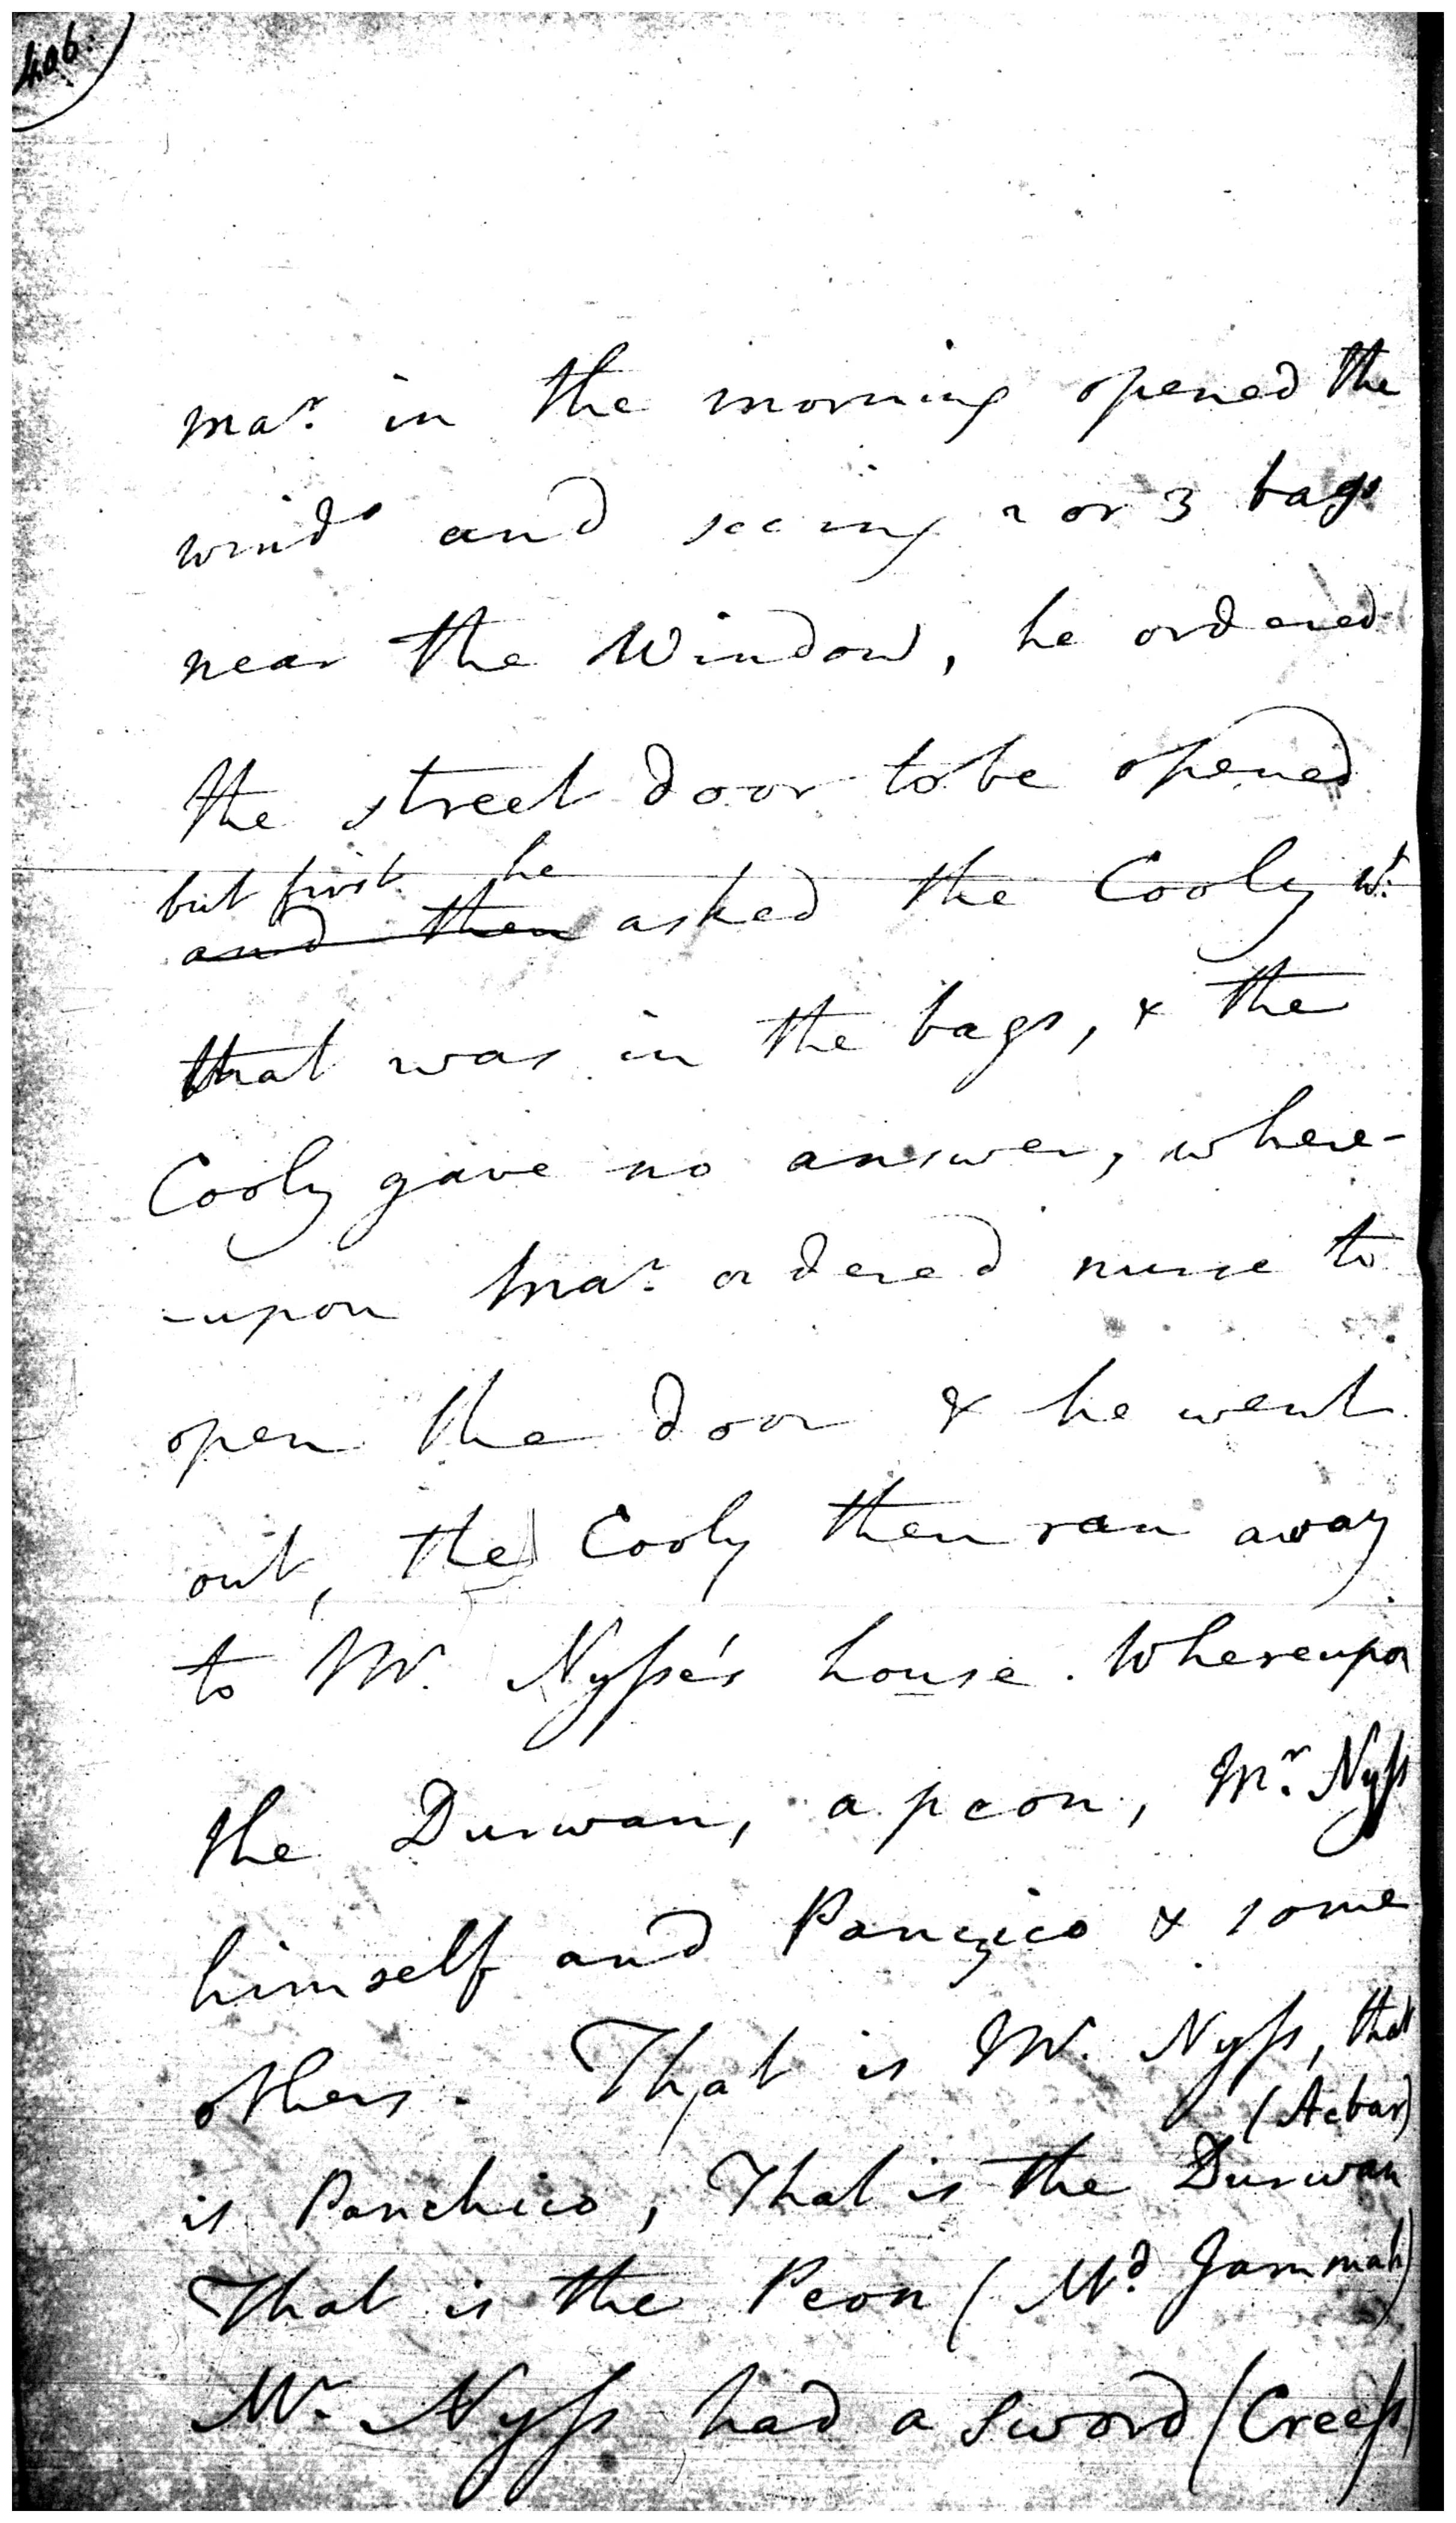 406.
mar. in the morning opened the
winds and seeing 2 or 3 bags
near the Window, he ordered
the street door to be opened
but first he
and then asked the Cooly wt.
that was in the bags, & the
Cooly gave no answer, where-
-upon mar. ordered nurse to
open the door & he went
out, the Cooly then ran away
to Mr. Nysse's house. Whereupon
the Durwan, a peon, Mr. Nyss
himself and Panzico & some
others. That is Mr. Nyss, that
(Acbar)
is Panchico, That is the Durwan
That is the Peon (Md Jammah)
Mr. Nyss had a sword (Creess)